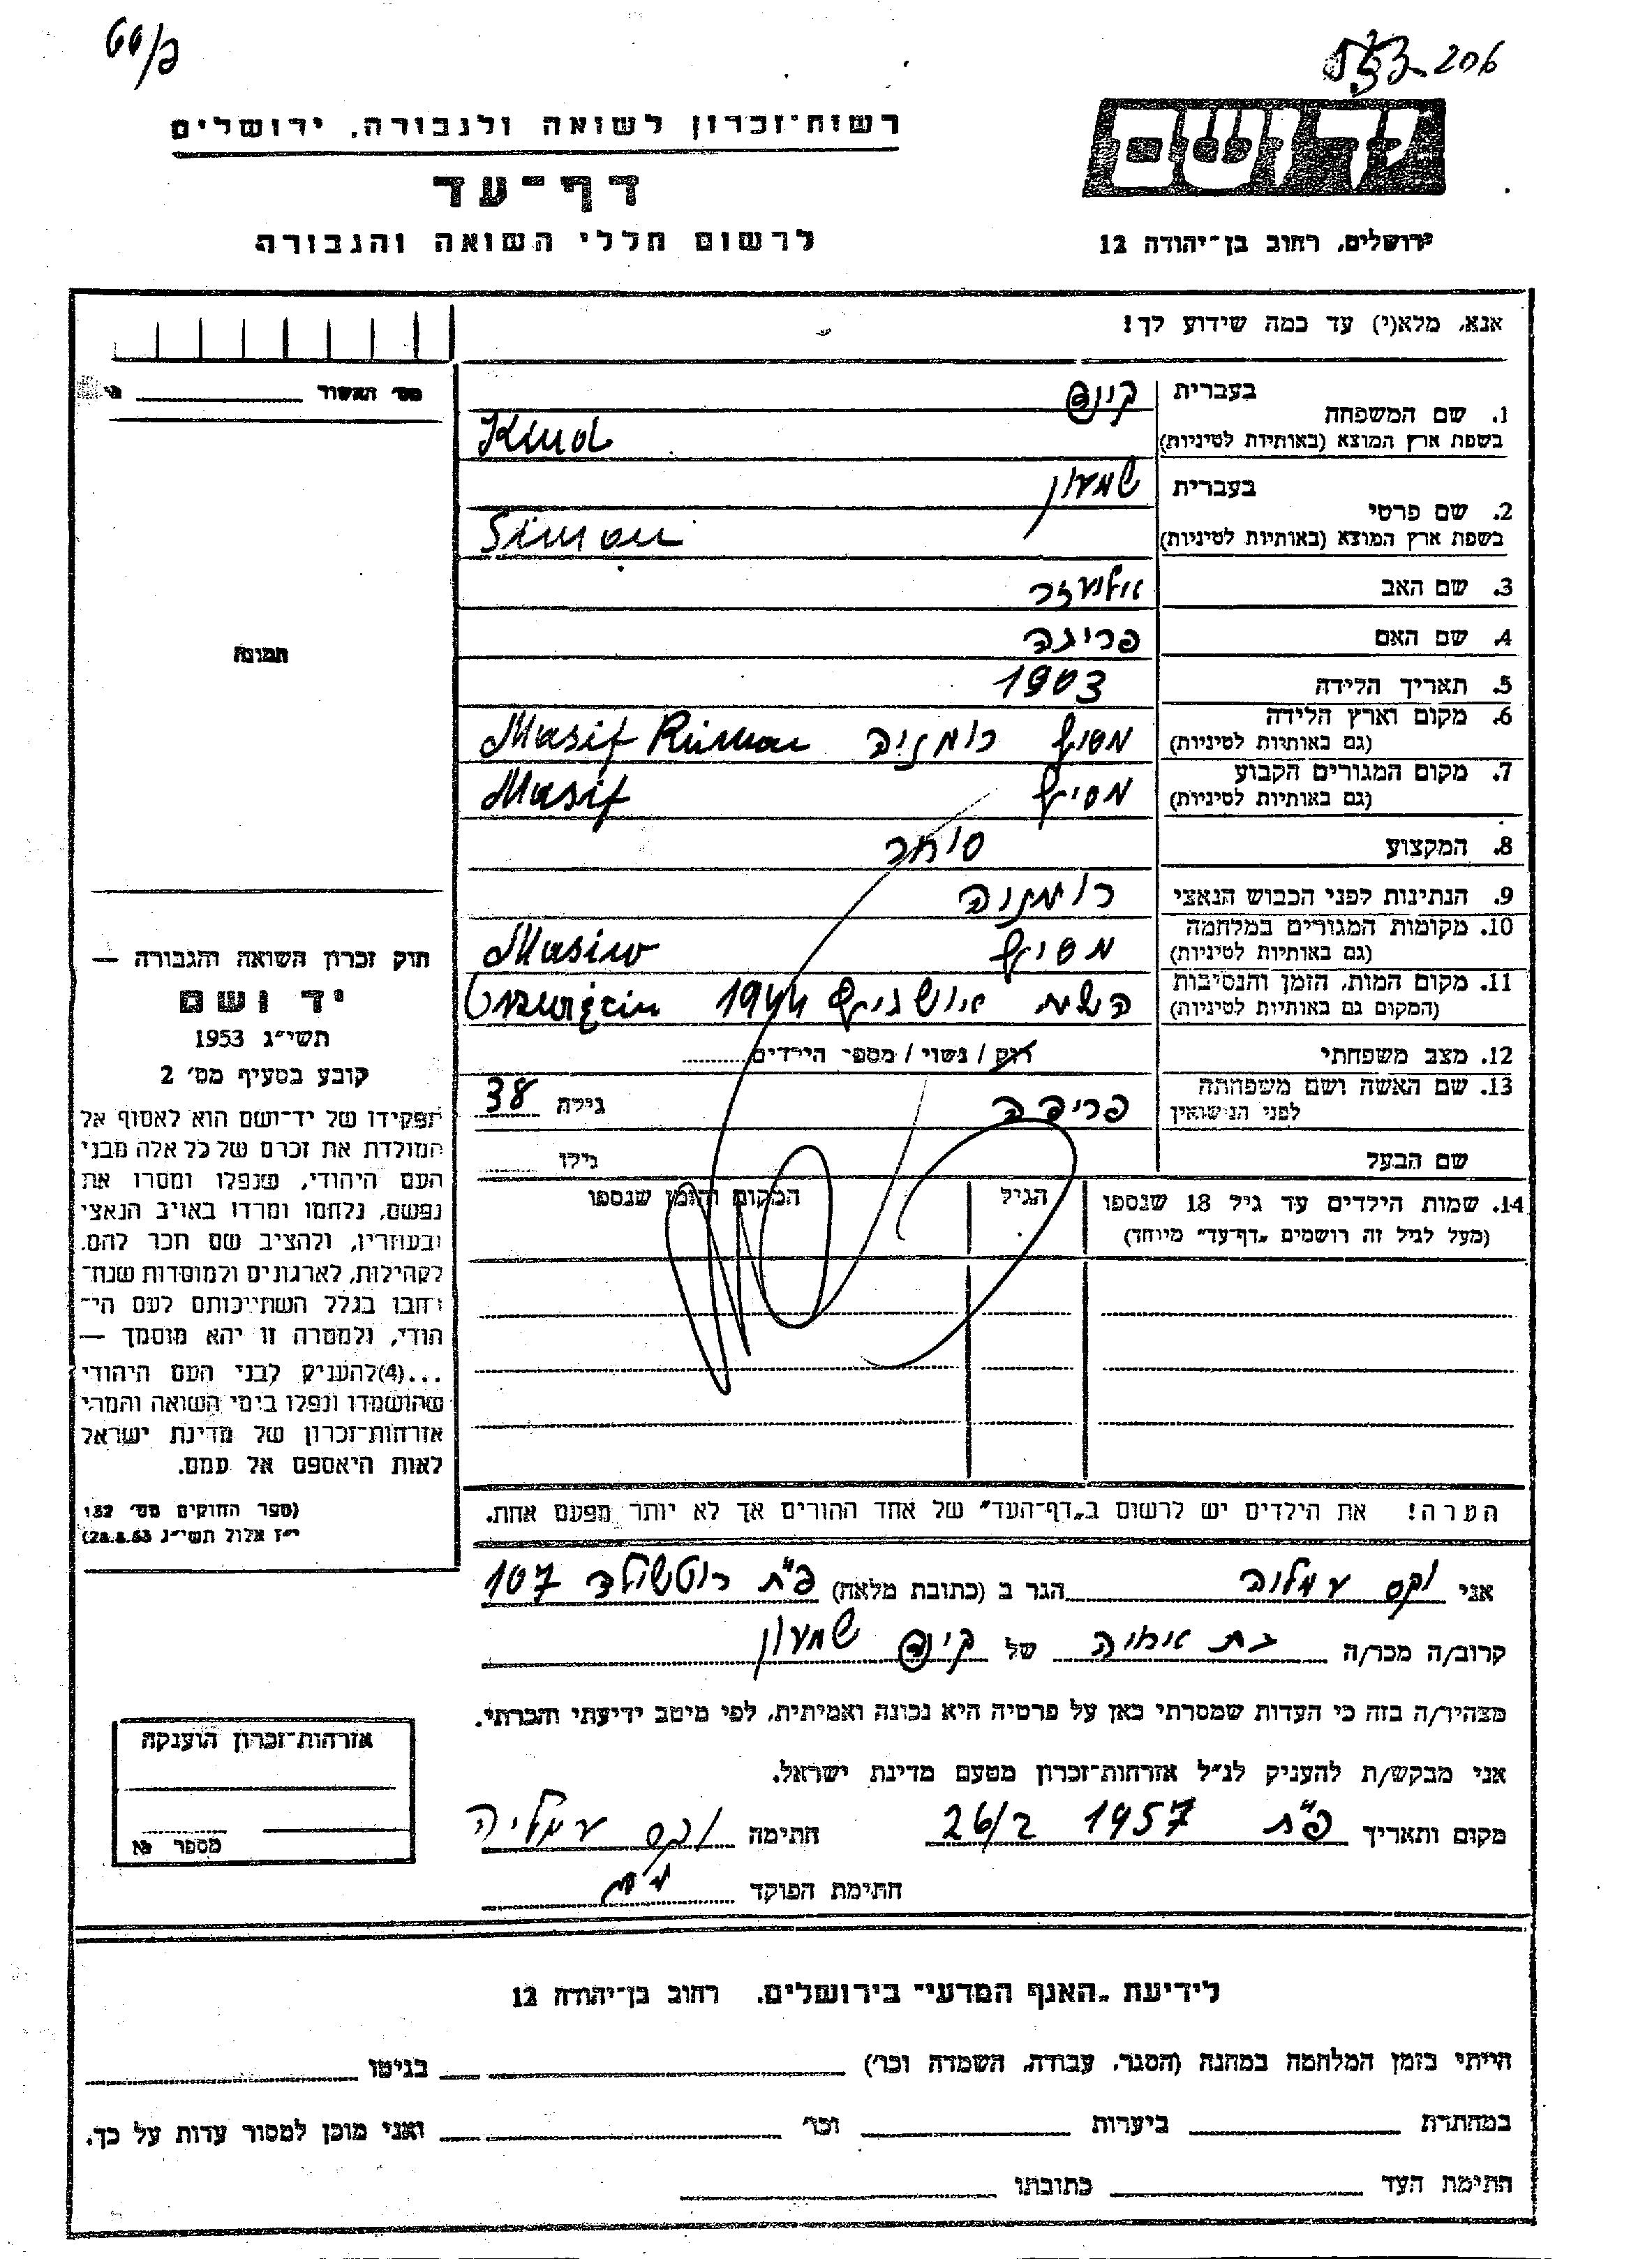 רשות־זכרון לשואה ולגבורה, ירושלים
דף־עד
לרשום חללי השואה והגבורה
יד ושם
ירושלים, רחוב בן־יהודה 12
206
אנא, מלא(י) עד כמה שידוע לך!
1. שם המשפחה
בעברית קינד
בשפת ארץ המוצא (באותיות לטיניות) Kind
2. שם פרטי
בעברית שמעון
בשפת ארץ המוצא (באותיות לטיניות) Simon
3. שם האב אליעזר
4. שם האם
5. תאריך הלידה 1903
6. מקום וארץ הלידה (גם באותיות לטיניות) מסיף רומניה Masif
7. מקום המגורים הקבוע (גם באותיות לטיניות) מסיף Masif
8. המקצוע סוחר
9. הנתינות לפני הכבוש הנאצי
10. מקומות המגורים במלחמה (גם באותיות לטיניות) מסיף
11. מקום המות, הזמן והנסיבות (המקום גם באותיות לטיניות) 1944
12. מצב משפחתי רוק / נשוי / מספר הילדים
13. שם האשה ושם משפחתה לפני הנישואין פרידה גילה 38
שם הבעל גילו
14. שמות הילדים עד גיל 18 שנספו
(מעל לגיל זה רושמים „דף־עד" מיוחד)
הגיל
המקום והזמן שנספו
הערה! את הילדים יש לרשום ב„דף־העד" של אחד ההורים אך לא יותר מפעם אחת.
מס׳ האשור
תמונה
חוק זכרון השואה והגבורה —
יד ושם
תשי״ג 1953
קובע בסעיף מס׳ 2
תפקידו של יד־ושם הוא לאסוף אל
המולדת את זכרם של כל אלה מבני
העם היהודי, שנפלו ומסרו את
נפשם, נלחמו ומרדו באויב הנאצי
ובעוזריו, ולהציב שם וזכר להם,
לקהילות, לארגונים ולמוסדות שנח־
רבו בגלל השתייכותם לעם הי־
הודי, ולמטרה זו יהא מוסמך —
...(4)להעניק לבני העם היהודי
שהושמדו ונפלו בימי השואה והמרי
אזרחות־זכרון של מדינת ישראל
לאות היאספם אל עמם.
(ספר החוקים מס׳ 132
י״ז אלול תשי״ג 28.8.53)
אני וקס עמליה הגר ב (כתובת מלאה) פ״ת רוטשילד 107
קרוב/ה מכר/ה בת של קינד שמעון
מצהיר/ה בזה כי העדות שמסרתי כאן על פרטיה היא נכונה ואמיתית, לפי מיטב ידיעתי והכרתי.
אני מבקש/ת להעניק לנ״ל אזרחות־זכרון מטעם מדינת ישראל.
מקום ותאריך פ״ת 1957 26/2 חתימה וקס עמליה
חתימת הפוקד
אזרחות־זכרון הוענקה
מספר
לידיעת „האגף המדעי" בירושלים. רחוב בן־יהודה 12
הייתי בזמן המלחמה במחנה (הסגר, עבודה, השמדה וכו׳) בגיטו
במחתרת ביערות וכו׳ ואני מוכן למסור עדות על כך.
חתימת העד כתובתו